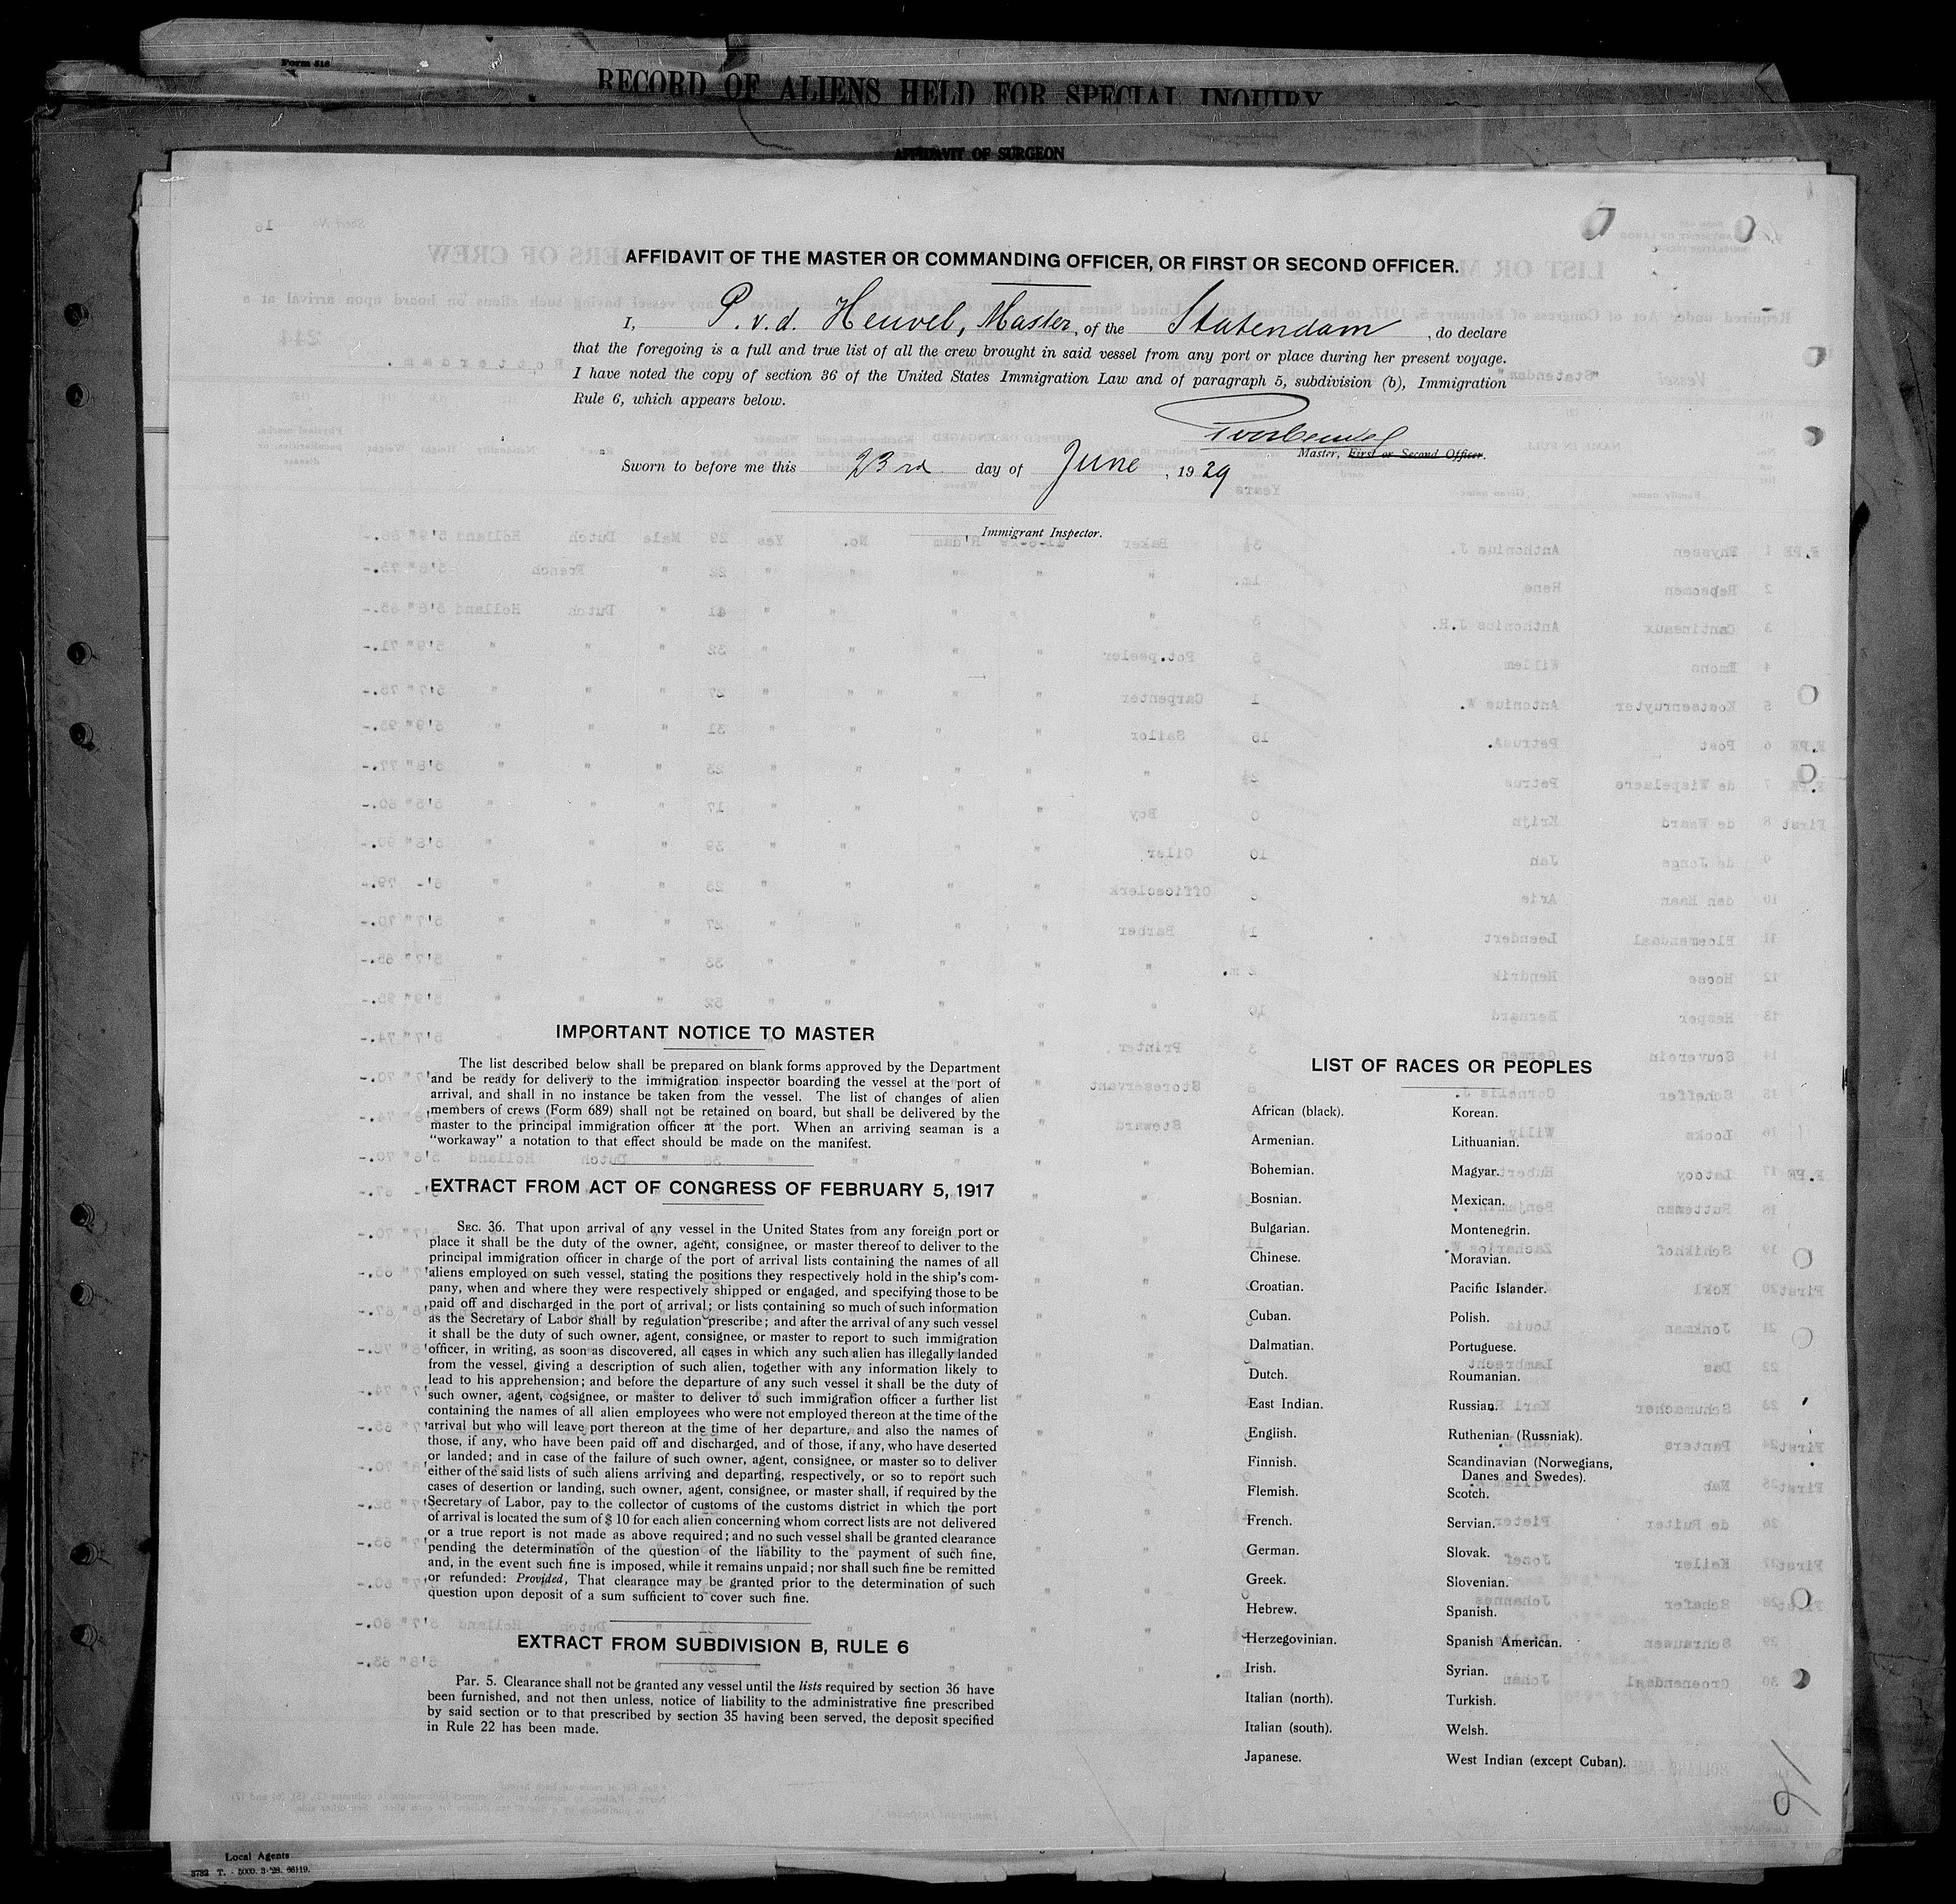 Form 516
RECORD OF ALIENS HELD FOR SPECIAL INQUIRY
AFFIDAVIT OF SURGEON
AFFIDAVIT OF THE MASTER OR COMMANDING OFFICER, OR FIRST OR SECOND OFFICER.
I, P. v. d. Heuvel, Master, of the Statendam, do declare
that the foregoing is a full and true list of all the crew brought in said vessel from any port or place during her present voyage.
I have noted the copy of section 36 of the United States Immigration Law and of paragraph 5, subdivision (b), Immigration
Rule 6, which appears below.
Master, First or Second Officer.
Sworn to before me this 23rd day of June, 1929
Immigrant Inspector.
IMPORTANT NOTICE TO MASTER
The list described below shall be prepared on blank forms approved by the Department
and be ready for delivery to the immigration inspector boarding the vessel at the port of
arrival, and shall in no instance be taken from the vessel. The list of changes of alien
members of crews (Form 689) shall not be retained on board, but shall be delivered by the
master to the principal immigration officer at the port. When an arriving seaman is a
"workaway" a notation to that effect should be made on the manifest.
EXTRACT FROM ACT OF CONGRESS OF FEBRUARY 5, 1917
SEC. 36. That upon arrival of any vessel in the United States from any foreign port or
place it shall be the duty of the owner, agent, consignee, or master thereof to deliver to the
principal immigration officer in charge of the port of arrival lists containing the names of all
aliens employed on such vessel, stating the positions they respectively hold in the ship's com-
pany, when and where they were respectively shipped or engaged, and specifying those to be
paid off and discharged in the port of arrival; or lists containing so much of such information
as the Secretary of Labor shall by regulation prescribe; and after the arrival of any such vessel
it shall be the duty of such owner, agent, consignee, or master to report to such immigration
officer, in writing, as soon as discovered, all cases in which any such alien has illegally landed
from the vessel, giving a description of such alien, together with any information likely to
lead to his apprehension; and before the departure of any such vessel it shall be the duty of
such owner, agent, cogsignee, or master to deliver to such immigration officer a further list
containing the names of all alien employees who were not employed thereon at the time of the
arrival but who will leave port thereon at the time of her departure, and also the names of
those, if any, who have been paid off and discharged, and of those, if any, who have deserted
or landed; and in case of the failure of such owner, agent, consignee, or master so to deliver
either of the said lists of such aliens arriving and departing, respectively, or so to report such
cases of desertion or landing, such owner, agent, consignee, or master shall, if required by the
Secretary of Labor, pay to the collector of customs of the customs district in which the port
of arrival is located the sum of $ 10 for each alien concerning whom correct lists are not delivered
or a true report is not made as above required; and no such vessel shall be granted clearance
pending the determination of the question of the liability to the payment of such fine,
and, in the event such fine is imposed, while it remains unpaid; nor shall such fine be remitted
or refunded: Provided, That clearance may be granted prior to the determination of such
question upon deposit of a sum sufficient to cover such fine.
EXTRACT FROM SUBDIVISION B, RULE 6
Par. 5. Clearance shall not be granted any vessel until the lists required by section 36 have
been furnished, and not then unless, notice of liability to the administrative fine prescribed
by said section or to that prescribed by section 35 having been served, the deposit specified
in Rule 22 has been made.
LIST OF RACES OR PEOPLES
African (black).
Armenian.
Bohemian.
Bosnian.
Bulgarian.
Chinese.
Croatian.
Cuban.
Dalmatian.
Dutch.
East Indian.
English.
Finnish.
Flemish.
French.
German.
Greek.
Hebrew.
Herzegovinian.
Irish.
Italian (north).
Italian (south).
Japanese.
Korean.
Lithuanian.
Magyar.
Mexican.
Montenegrin.
Moravian.
Pacific Islander.
Polish.
Portuguese.
Roumanian.
Russian.
Ruthenian (Russniak).
Scandinavian (Norwegians,
Danes and Swedes).
Scotch.
Servian.
Slovak.
Slovenian.
Spanish.
Spanish American.
Syrian.
Turkish.
Welsh.
West Indian (except Cuban).
Local Agents
3732 T. - 5000. 3-'28. 66119.